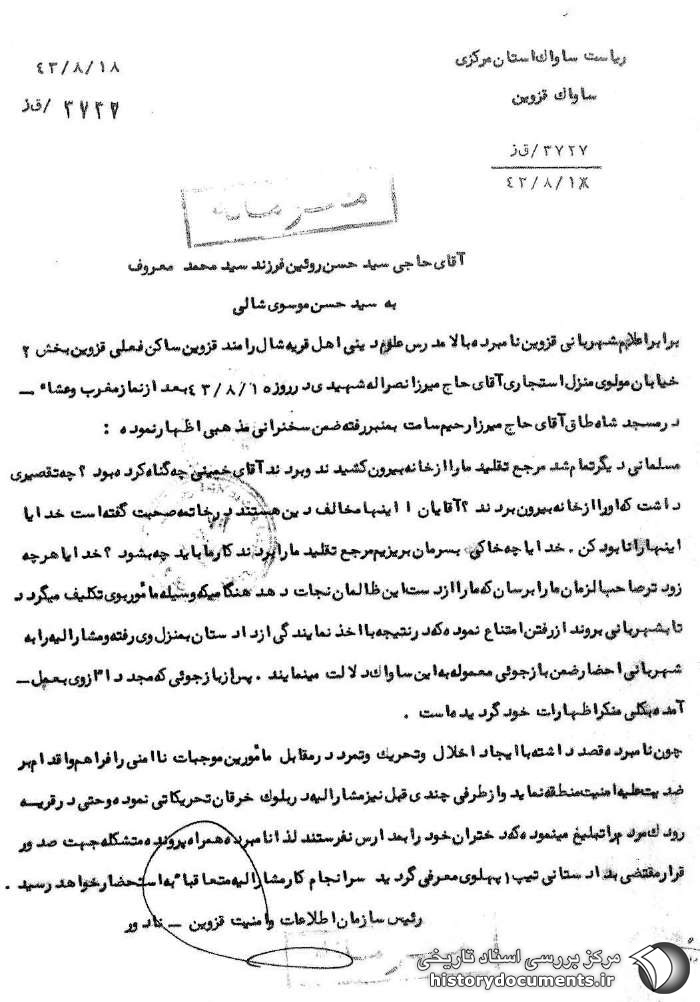 ریاست ساواک استان مرکزی
ساواک قزوین
۴۳/۸/۱۸
۳۷۲۷/ق ز
۳۷۲۷/ق ز
۴۳/۸/۱۸
محرمانه
آقای حاجی سید حسن روئین فرزند سید محمد معروف
به سید حسن موسوی شالی
برابر اعلام شهربانی قزوین نامبرده بالا مدرس علوم دینی اهل قریه شال رامند قزوین ساکن فعلی قزوین بخش ۲
خیابان مولوی منزل استجاری آقای حاج میرزا نصراله شهیدی در روز ۴۳/۸/۱۵ بعد از نماز مغرب و عشاء ــ
در مسجد شاه طاق آقای حاج میرزا رحیم سامت بمنبر رفته ضمن سخنرانی مذهبی اظهار نموده :
مسلمانی دیگر تمام شد مرجع تقلید ما را از خانه بیرون کشیدند و بردند آقای خمینی چه گناه کرده بود ؟ چه تقصیری
داشت که او را از خانه بیرون بردند ؟ آقایان ! اینها مخالف دین هستند در خاتمه صحبت گفته است خدایا
اینها را نابود کن . خدایا چه خاکی بسرمان بریزیم مرجع تقلید ما را بردند کار ما باید چه بشود ؟ خدایا هرچه
زودتر صاحب الزمان ما را برسان که ما را از دست این ظالمان نجات دهد هنگامیکه وسیله مأموربوی تکلیف میگردد
تا بشهربانی بروند از رفتن امتناع نموده که در نتیجه با اخذ نمایندگی از دادستان بمنزل وی رفته و مشارالیه را به
شهربانی احضار ضمن بازجوئی معموله به این ساواک دلالت مینمایند . پس از بازجوئی که مجدداً از وی بعمل ــ
آمده بکلی منکر اظهارات خود گردیده است .
چون نامبرده قصد داشته با ایجاد اخلال و تحریک و تمرد در مقابل مأمورین موجبات ناامنی را فراهم و اقدام بر
ضدیت علیه امنیت منطقه نماید و از طرفی چندی قبل نیز مشارالیه در بلوک خرقان تحریکاتی نموده و حتی در قریه
رودک مردم را تبلیغ مینموده که دختران خود را بمدارس نفرستند لذا نامبرده همراه پرونده متشکله جهت صدور
قرار مقتضی بدادستانی تیپ ۱ پهلوی معرفی گردید سرانجام کار مشارالیه متعاقباً به استحضار خواهد رسید .
رئیس سازمان اطلاعات و امنیت قزوین ــ نادور
مرکز بررسی اسناد تاریخی
historydocuments.ir